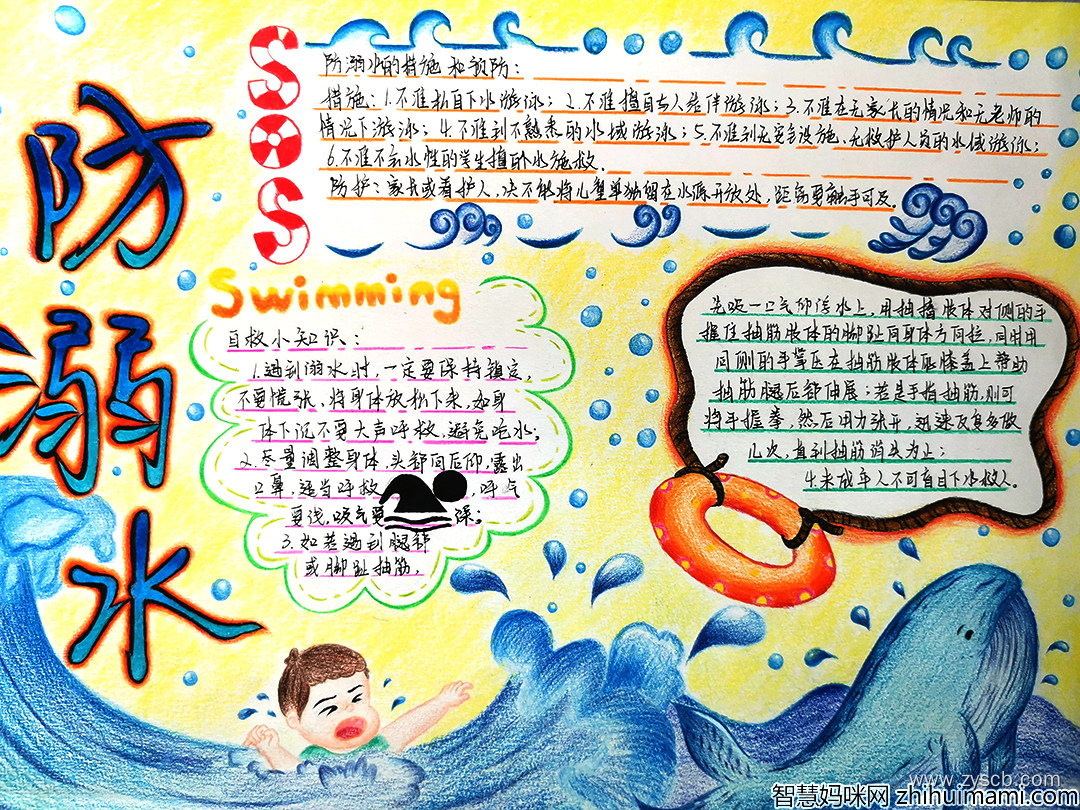 防溺水
SOS
防溺水的措施和预防：
措施：1.不准私自下水游泳；2.不准擅自与人结伴游泳；3.不准在无家长的情况和无老师的
情况下游泳；4.不准到不熟悉的水域游泳；5.不准到无安全设施、无救护人员的水域游泳；
6.不准不会水性的学生擅自下水施救.
防护：家长或看护人、决不能将儿童单独留在水源开放处，距离要触手可及。
Swimming
自救小知识：
1.遇到溺水时，一定要保持镇定，
不要慌张、将身体放松下来，如身
体下沉不要大声呼救，避免呛水；
2.尽量调整身体，头部向后仰，露出
口鼻，适当呼救，呼气
要浅，吸气要深；
3.如若遇到腿部
或脚趾抽筋，
先吸一口气仰浮水上，用抽搐肢体对侧的手
握住抽筋肢体的脚趾向身体方向拉，同时用
同侧的手掌压在抽筋肢体膝盖上帮助
抽筋腿后部伸展；若是手指抽筋，则可
将手握拳，然后用力张开，迅速反复多做
几次，直到抽筋消失为止；
4.未成年人不可自下水救人。
www.zyscb.com
智慧妈咪网 zhihuimami.com